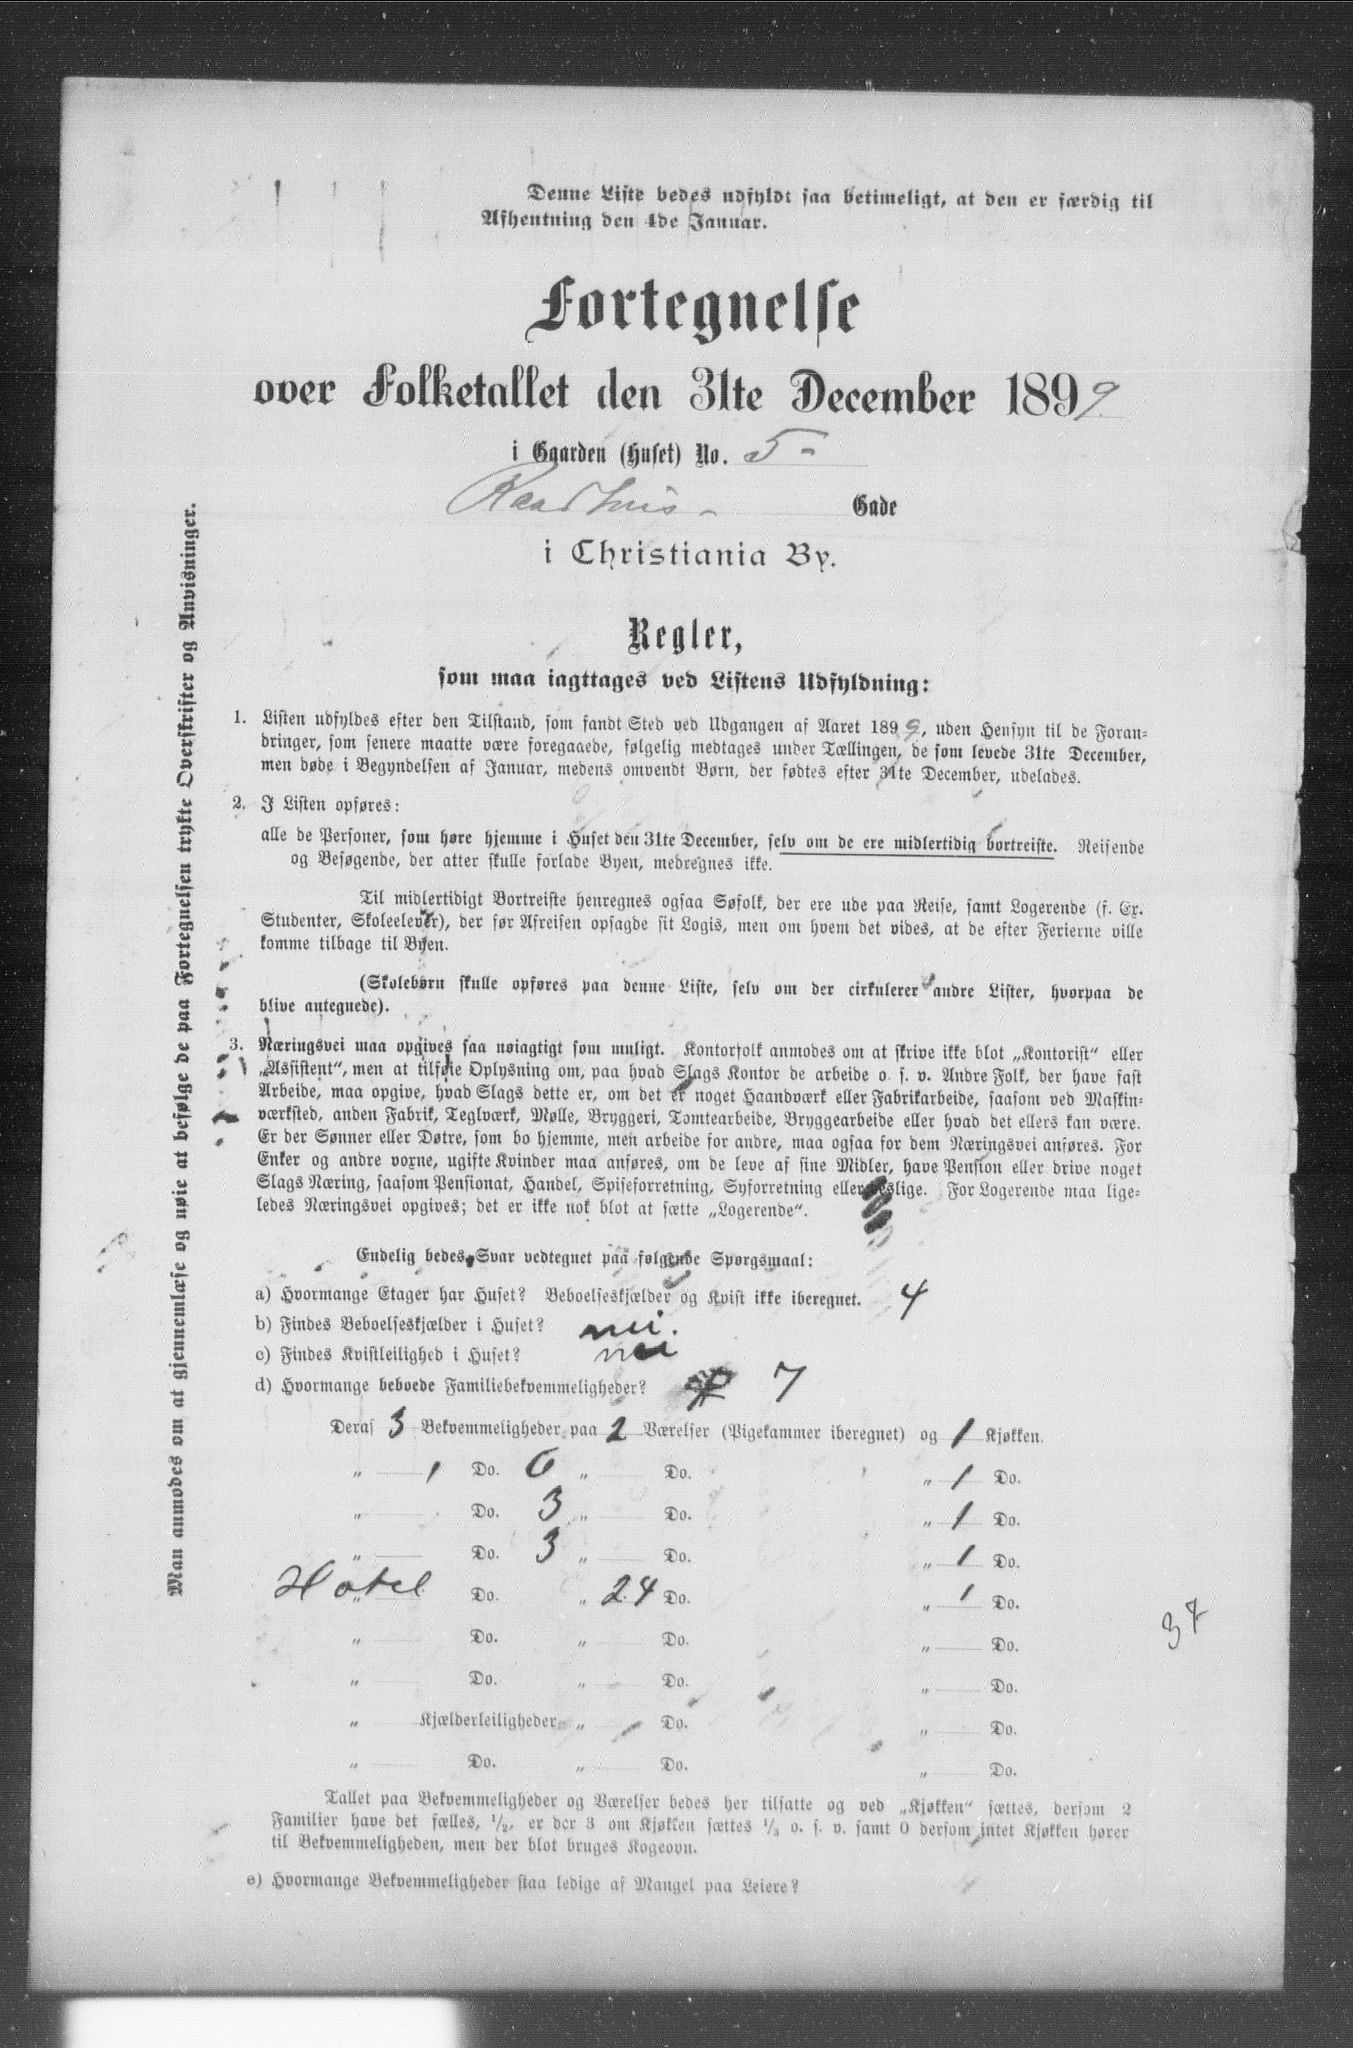 Denne Liste bedes udfyldt saa betimeligt, at den er færdig til
Afhentning den 4de Januar.
Fortegnelse
over Folketallet den 31te December 1899.
i Gaarden (Huset) No. 5-
Raadhus- Gade
i Christiania By.
Regler,
som maa iagttages ved Listens Udfyldning:
1. Listen udfyldes efter den Tilstand, som fandt Sted ved Udgangen af Aaret 1899, uden Hensyn til de Foran-
dringer, som senere maatte være foregaaede, følgelig medtages under Tællingen, de som levede 31te December,
men døde i Begyndelsen af Januar, medens omvendt Børn, der fødtes efter 31te December, udelades.
2. I Listen opføres:
alle de Personer, som høre hjemme i Huset den 31te December, selv om de ere midlertidig bortreiste. Reisende
og Besøgende, der atter skulle forlade Byen, medregnes ikke.
Til midlertidigt Bortreiste henregnes ogsaa Søfolk, der ere ude paa Reise, samt Logerende (f. Ex.
Studenter, Skoleelever), der før Afreisen opsagde sit Logis, men om hvem det vides, at de efter Ferierne ville
komme tilbage til Byen.
(Skolebørn skulle opføres paa denne Liste, selv om der cirkulerer andre Lister, hvorpaa de
blive antegnede).
3. Næringsvei maa opgives saa nøiagtigt som muligt. Kontorfolk anmodes om at skrive ikke blot „Kontorist“ eller
„Assistent“, men at tilføie Oplysning om, paa hvad Slags Kontor de arbeide o. s. v. Andre Folk, der have fast
Arbeide, maa opgive, hvad Slags dette er, om det er noget Haandværk eller Fabrikarbeide, saasom ved Maskin-
værksted, anden Fabrik, Teglværk, Mølle, Bryggeri, Tomtearbeide, Bryggearbeide eller hvad det ellers kan være.
Er der Sønner eller Døtre, som bo hjemme, men arbeide for andre, maa ogsaa for dem Næringsvei anføres. For
Enker og andre voxne, ugifte Kvinder maa anføres, om de leve af sine Midler, have Pension eller drive noget
Slags Næring, saasom Pensionat, Handel, Spiseforretning, Syforretning eller deslige. For Logerende maa lige-
ledes Næringsvei opgives; det er ikke nok blot at sætte „Logerende“.
Endelig bedes Svar vedtegnet paa følgende Spørgsmaal:
a) Hvormange Etager har Huset? Beboelseskjælder og Kvist ikke iberegnet. 4
b) Findes Beboelseskjælder i Huset? nei.
c) Findes Kvistleilighed i Huset? nei
d) Hvormange beboede Familiebekvemmeligheder? 7
Deraf 3 Bekvemmeligheder paa 2 Værelser (Pigekammer iberegnet) og 1 Kjøkken.
„ 1 Do. 6 „ Do. „ 1 Do.
„ Do. 3 „ Do. „ 1 Do.
„ Do. 3 „ Do. „ 1 Do.
Hotel „ Do. „ 24 Do. „ 1 Do.
37
„ Do. „ Do. „ Do.
„ Do. „ Do. „ Do.
„ Kjælderleiligheder „ Do. „ Do.
„ Do. „ Do. „ Do.
Tallet paa Bekvemmeligheder og Værelser bedes her tilsatte og ved „Kjøkken“ sættes, dersom 2
Familier have det fælles, 1/2, er der 3 om Kjøkken sættes 1/3 o. s. v. samt 0 dersom intet Kjøkken hører
til Bekvemmeligheden, men der blot bruges Kogeovn.
e) Hvormange Bekvemmeligheder staa ledige af Mangel paa Leiere?
Man anmodes om at gjennemlæse og nøie at befølge de paa Fortegnelsen trykte Overskrifter og Anvisninger.